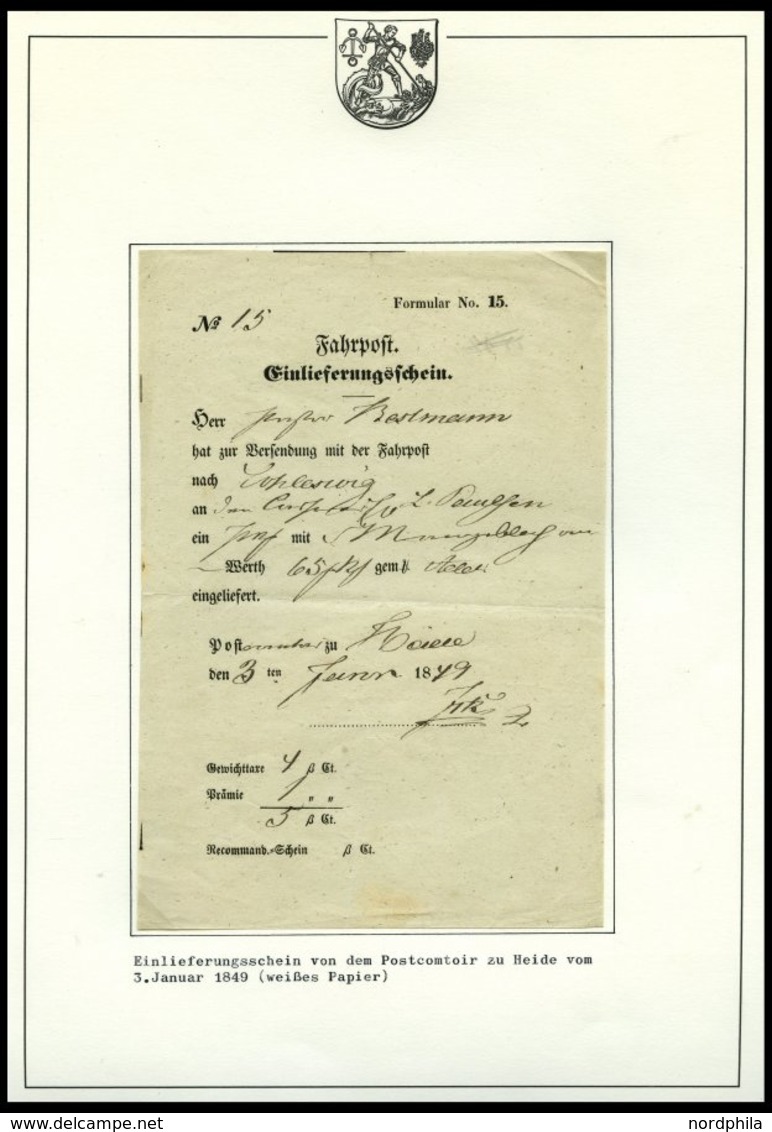 Formular No. 15.
№ 15
Fahrpost.
Einlieferungsschein.
Herr Bestmann
hat zur Versendung mit der Fahrpost
nach Schleswig
an den
ein mit
Werth 65 gem.
eingeliefert.
Post zu Heide
den 3 ten Januar 1849
Gewichttaxe 4 ß Ct.
Prämie 1 " "
5 ß Ct.
Recommand.-Schein ß Ct.
Einlieferungsschein von dem Postcomtoir zu Heide vom
3.Januar 1849 (weißes Papier)
www.delcampe.net
nordphila